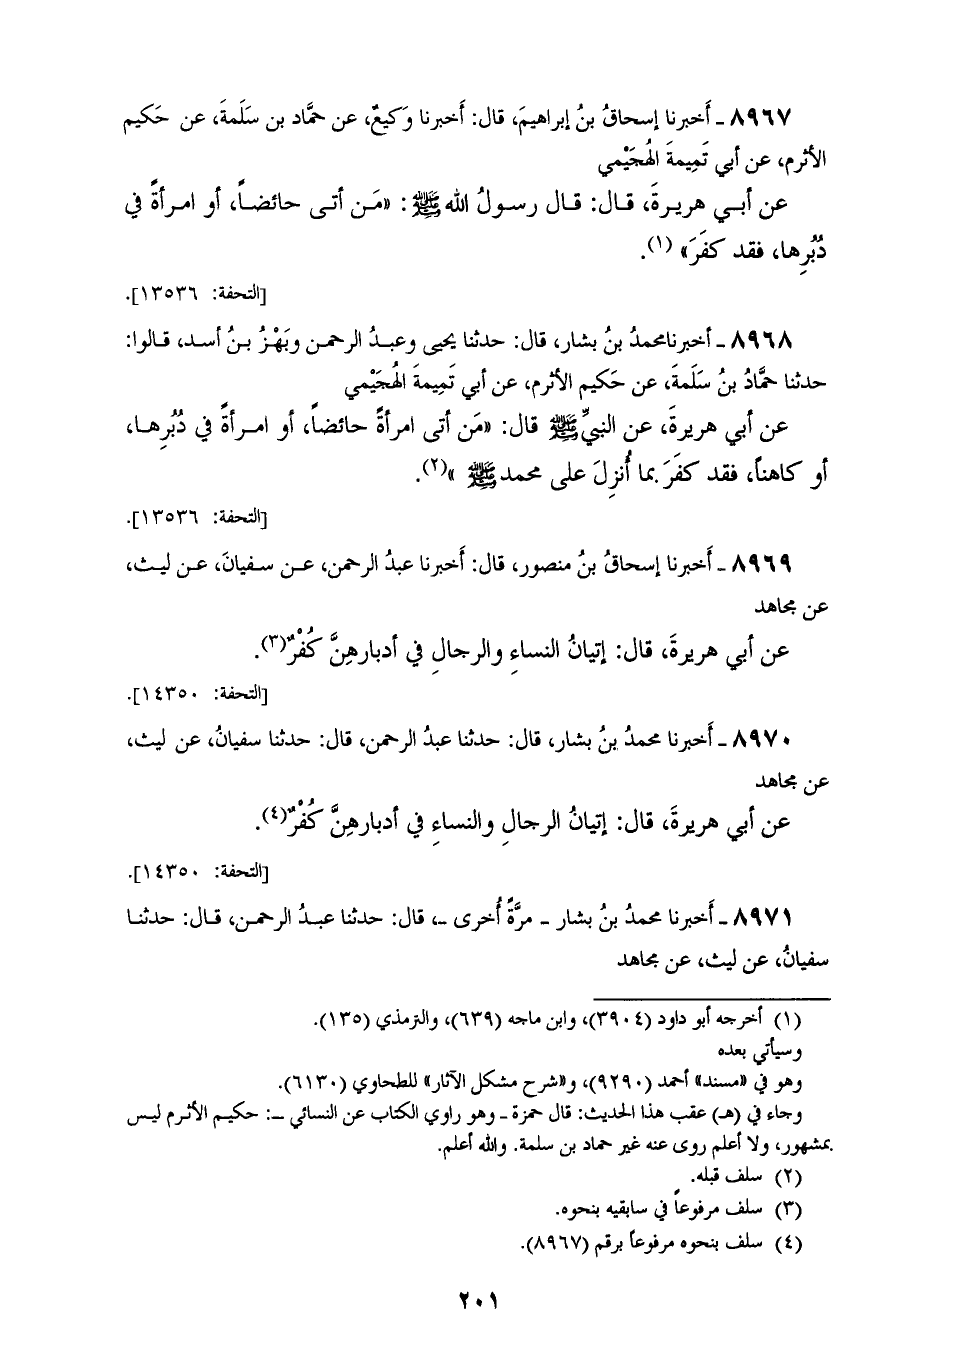 ٨٩٦٧ ـ أَخبرنا إسحاقُ بنُ إبراهيمَ، قال: أَخبرنا وَكيعٌ، عن حمَّاد بن سَلَمةَ، عن حَكيم
الأثرم، عن أبي تَميمةَ الهُجَيْمي
عن أبـي هريـرةَ، قـال: قـال رسـولُ الله ﷺ : «مَـن أتـى حائضـاً، أو امـرأةً في
دُبُرِها، فقد كفَرَ» (١).
[التحفة: ١٣٥٣٦].
٨٩٦٨ ـ أخبرنامحمدُ بنُ بشار، قال: حدثنا يحيى وعبـدُ الرحمـن وبَهْـزُ بـنُ أسـد، قـالوا:
حدثنا حمَّادُ بنُ سَلَمةَ، عن حَكيم الأثرم، عن أبي تَمِيمةَ الهُجَيْمي
عن أبي هريرةَ، عن النبيِّ ﷺ قال: «مَن أتى امرأةً حائضاً، أو امـرأةً في دُبُرِهـا،
أو كاهناً، فقد كفَرَ بما أُنزِلَ على محمد ﷺ »(٢).
[التحفة: ١٣٥٣٦].
٨٩٦٩ ـ أَخبرنا إسحاقُ بنُ منصور، قال: أَخبرنا عبدُ الرحمن، عـن سـفيانَ، عـن ليـث،
عن مجاهد
عن أبي هريرةَ، قال: إتيانُ النساءِ والرجالِ في أدبارهِنَّ كُفْرٌ(٣).
[التحفة: ١٤٣٥٠].
٨٩٧٠ ـ أَخبرنا محمدُ بنُ بشار، قال: حدثنا عبدُ الرحمن، قال: حدثنا سفيانُ، عن ليث،
عن مجاهد
عن أبي هريرةَ، قال: إتيانُ الرجالِ والنساءِ في أدبارهِنَّ كُفْرٌ(٤).
[التحفة: ١٤٣٥٠].
٨٩٧١ ـ أَخبرنا محمدُ بنُ بشار ـ مرَّةً أُخرى ـ، قال: حدثنا عبـدُ الرحمـن، قـال: حدثنـا
سفيانُ، عن ليث، عن مجاهد
(١) أخرجه أبو داود (٣٩٠٤)، وابن ماجه (٦٣٩)، والترمذي (١٣٥).
وسيأتي بعده
وهو في «مسند» أحمد (٩٢٩٠)، و«شرح مشكل الآثار» للطحاوي (٦١٣٠).
وجاء في (هـ) عقب هذا الحديث: قال حمزة ـ وهو راوي الكتاب عن النسائي ـ: حكيـم الأثـرم ليـس
بمشهور، ولا أعلم روى عنه غير حماد بن سلمة. والله أعلم.
(٢) سلف قبله.
(٣) سلف مرفوعاً في سابقيه بنحوه.
(٤) سلف بنحوه مرفوعاً برقم (٨٩٦٧).
٢٠١